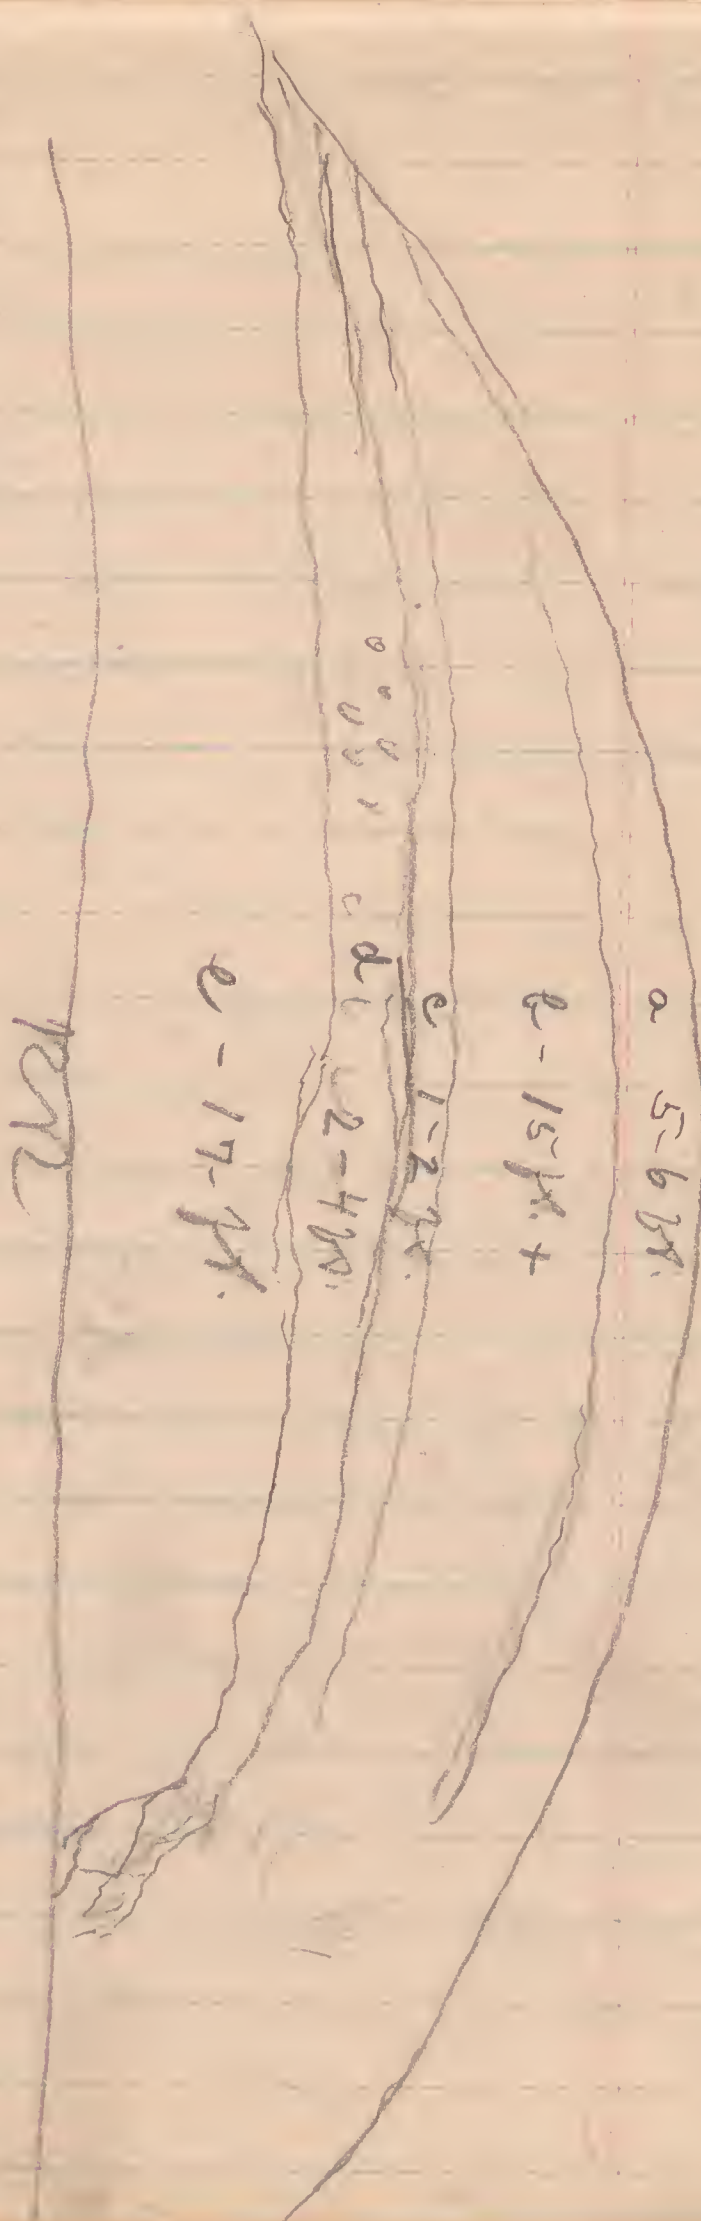 a 5-6 ft.
b - 15 ft. +
c 1-2 ft.
d 2-4 ft.
e - 17 ft.